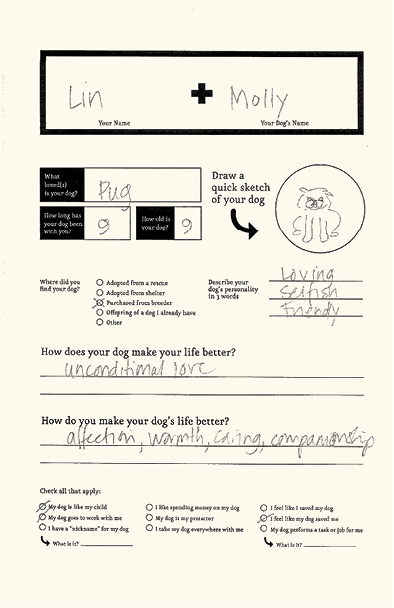 Lin + Molly
Your Name Your Dog's Name
What breed(s) is your dog? Pug
How long has your dog been with you? 9 How old is your dog? 9
Draw a
quick sketch
of your dog
Where did you
find your dog?
Adopted from a rescue
Adopted from shelter
Purchased from breeder
Offspring of a dog I already have
Other
Describe your
dog's personality
in 3 words
Loving
Selfish
Friendly
How does your dog make your life better?
unconditional love
How do you make your dog's life better?
affection, warmth, caring, companionship
Check all that apply:
My dog is like my child
My dog goes to work with me
I have a "nickname" for my dog
What is it?
I like spending money on my dog
My dog is my protector
I take my dog everywhere with me
I feel like I saved my dog
I feel like my dog saved me
My dog performs a task or job for me
What is it?